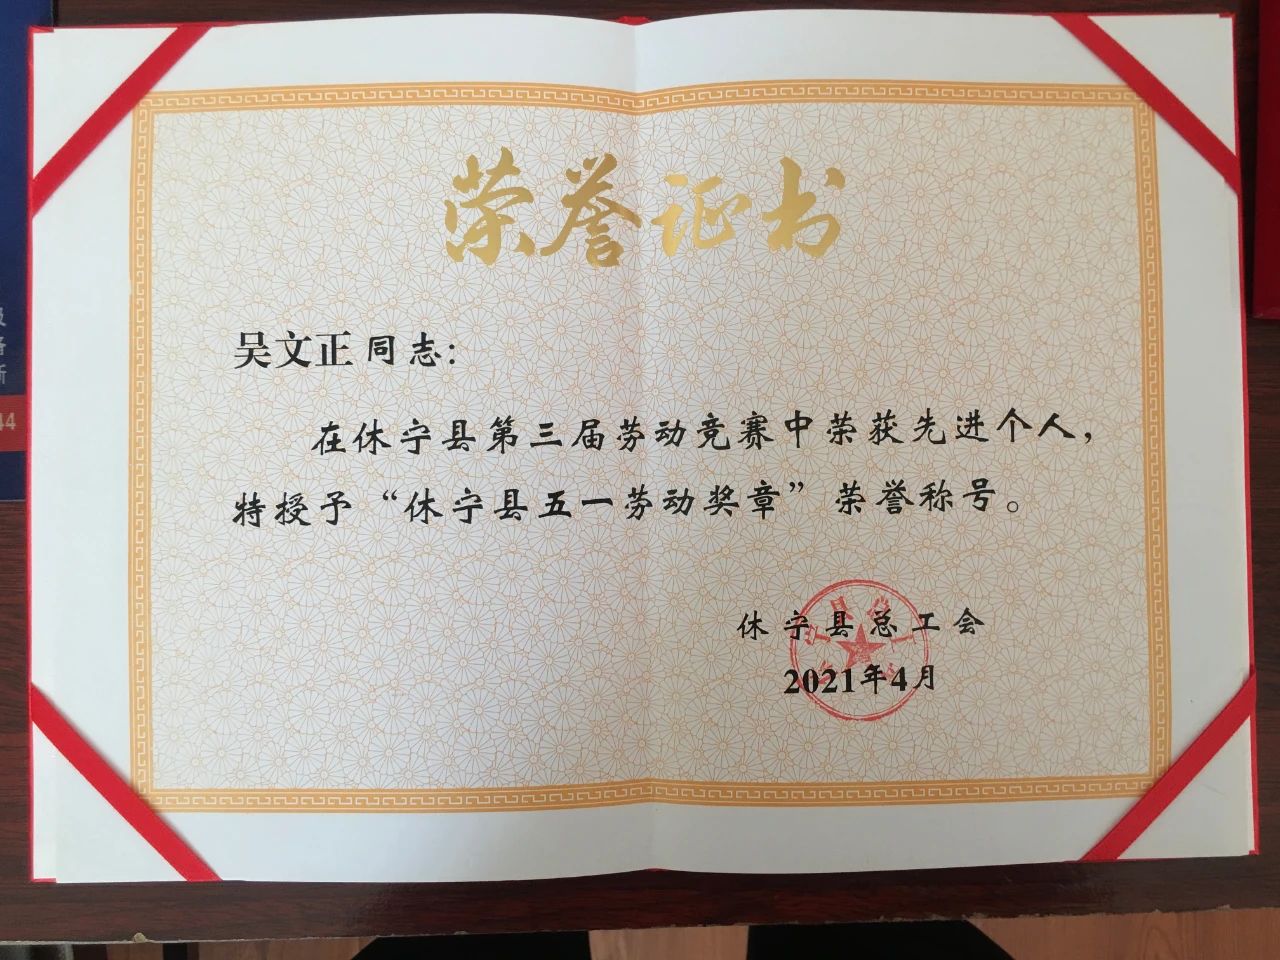 荣誉证书
吴文正同志：
在休宁县第三届劳动竞赛中荣获先进个人，
特授予“休宁县五一劳动奖章”荣誉称号。
休宁县总工会
2021年4月
44